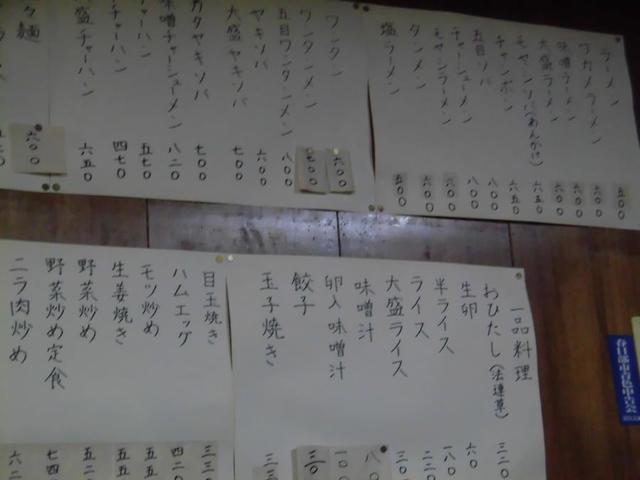 ラーメン 五〇〇
ワカメラーメン 六〇〇
味噌ラーメン 六〇〇
大盛ラーメン 六〇〇
モヤシソバ(あんかけ) 六五〇
チャンポン 六五〇
五目ソバ 八〇〇
チャーシューメン 八〇〇
モヤシラーメン 六〇〇
タンメン 六〇〇
塩ラーメン 五〇〇
ワンタン 六〇〇
ワンタンメン 七〇〇
五目ワンタンメン 八〇〇
ヤキソバ 六〇〇
大盛ヤキソバ 七〇〇
カタヤキソバ 七〇〇
味噌チャーシューメン 八二〇
チャーハン 五七〇
チャーハン 四七〇
盛チャーハン 六五〇
々麺 六〇〇
一品料理
おひたし(法連草) 三二〇
生卵 六〇
半ライス 一八〇
ライス 二二〇
大盛ライス 三〇
味噌汁 八〇
卵入味噌汁 一〇〇
餃子
玉子焼き 三三
目玉焼き 三三〇
ハムエッグ 四二〇
モツ炒め 五五
生姜焼き 五五
野菜炒め 五二
野菜炒め定食 七四
ニラ肉炒め 六二